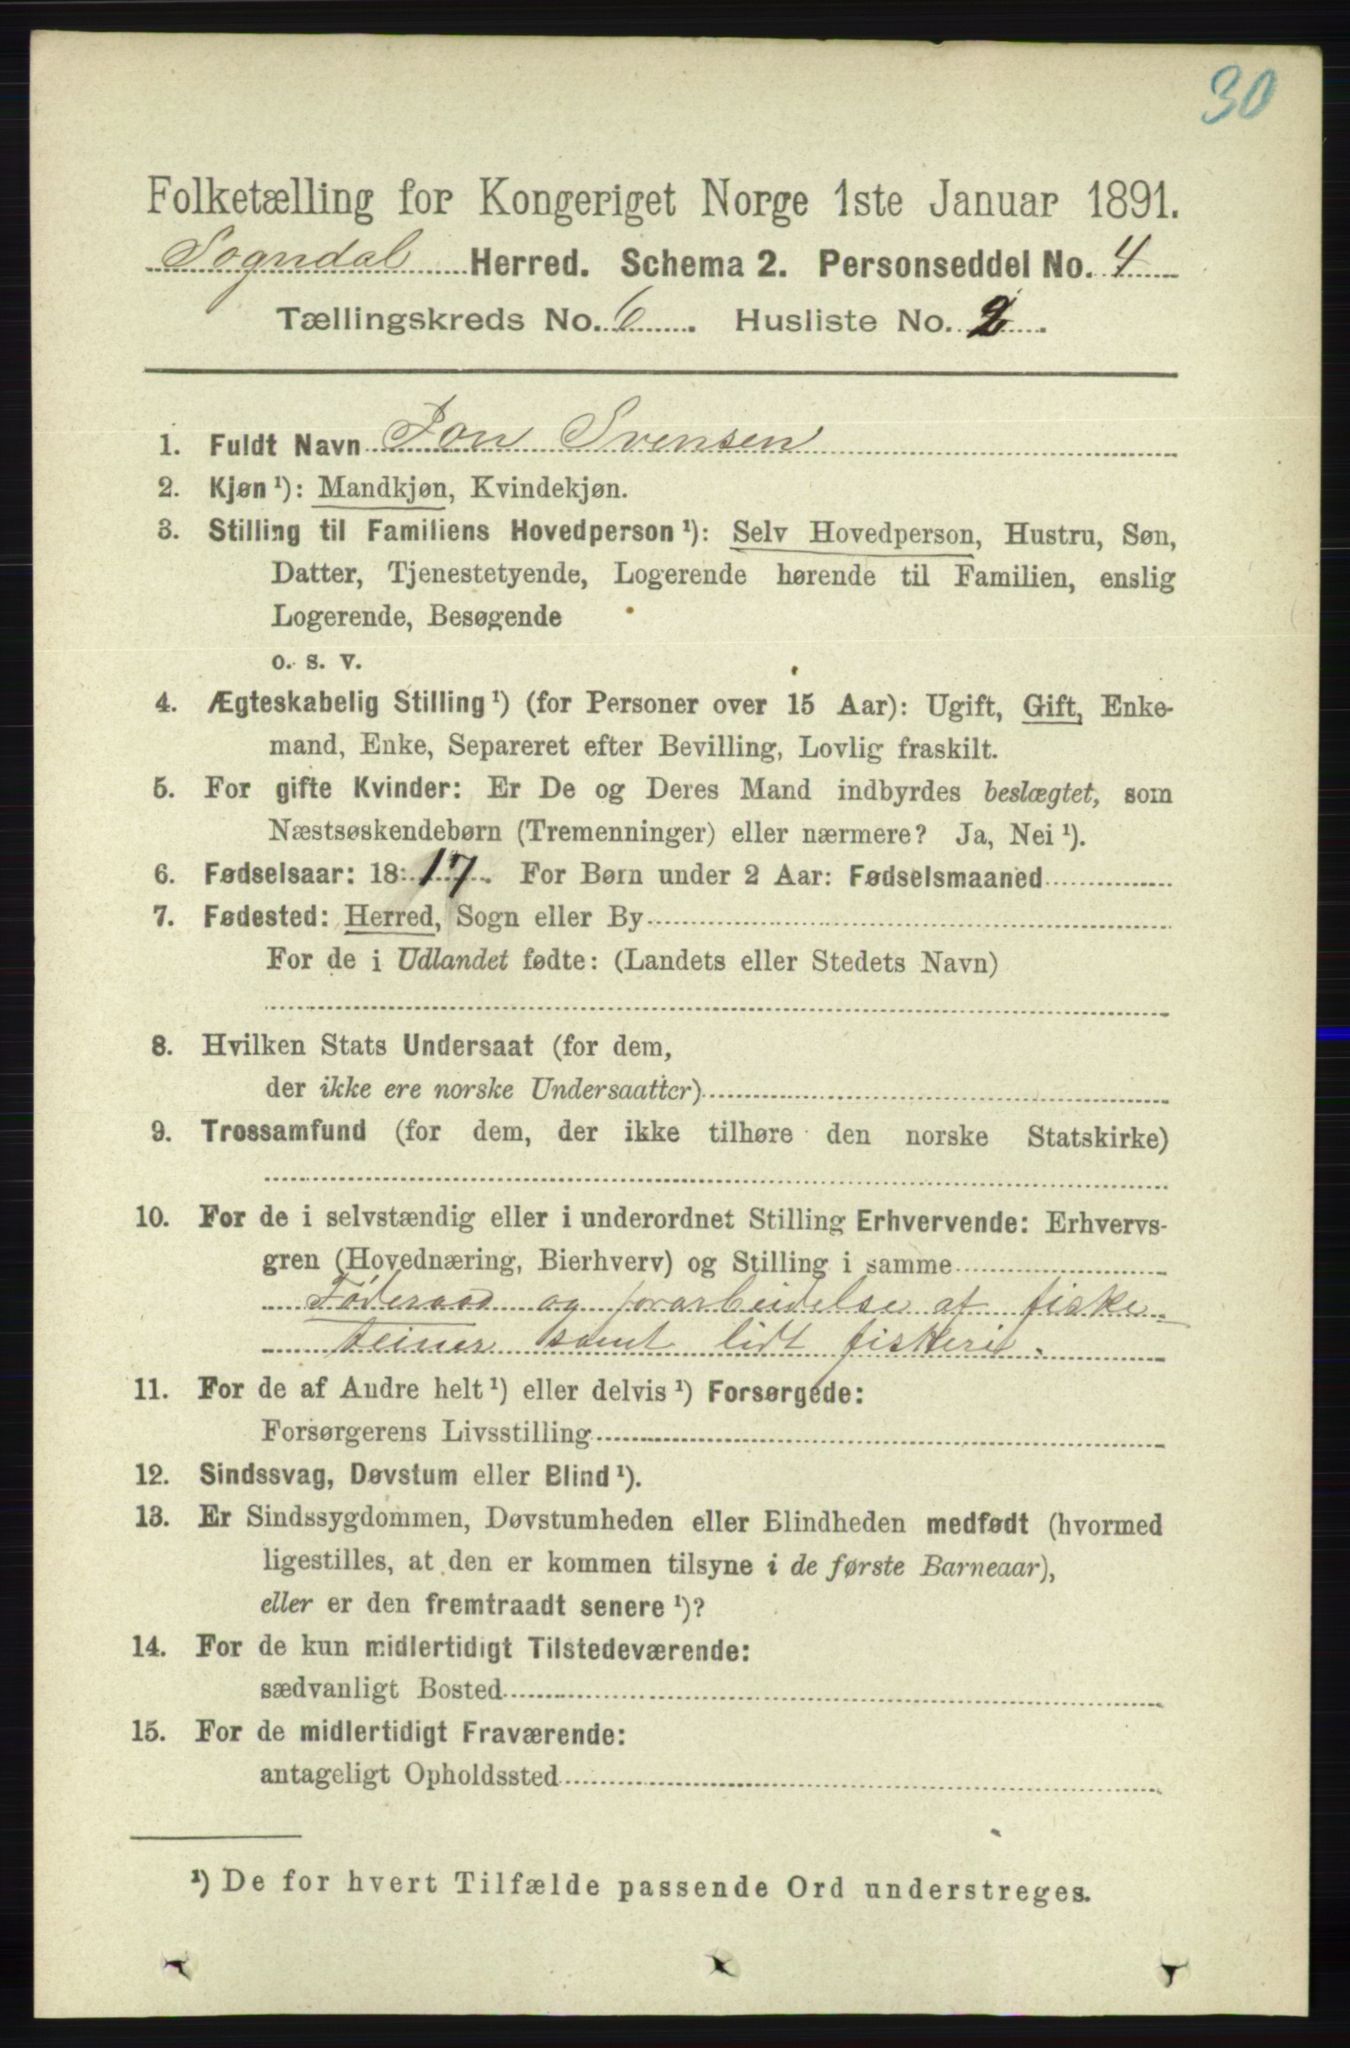 30
Folketælling for Kongeriget Norge 1ste Januar 1891.
Sogndal Herred. Schema 2. Personseddel No. 4
Tællingskreds No. 6. Husliste No. 2.
1. Fuldt Navn Jon Svensen
2. Kjøn ¹): Mandkjøn, Kvindekjøn.
3. Stilling til Familiens Hovedperson ¹): Selv Hovedperson, Hustru, Søn,
Datter, Tjenestetyende, Logerende hørende til Familien, enslig
Logerende, Besøgende
o. s. v.
4. Ægteskabelig Stilling ¹) (for Personer over 15 Aar): Ugift, Gift, Enke-
mand, Enke, Separeret efter Bevilling, Lovlig fraskilt.
5. For gifte Kvinder: Er De og Deres Mand indbyrdes beslægtet, som
Næstsøskendebørn (Tremenninger) eller nærmere? Ja, Nei ¹).
6. Fødselsaar: 1817. For Børn under 2 Aar: Fødselsmaaned
7. Fødested: Herred, Sogn eller By
For de i Udlandet fødte: (Landets eller Stedets Navn)
8. Hvilken Stats Undersaat (for dem,
der ikke ere norske Undersaatter)
9. Trossamfund (for dem, der ikke tilhøre den norske Statskirke)
10. For de i selvstændig eller i underordnet Stilling Erhvervende: Erhvervs-
gren (Hovednæring, Bierhverv) og Stilling i samme
Føderaad og forarbeidelse af fiske-
teiner samt lidt fiskeri.
11. For de af Andre helt ¹) eller delvis ¹) Forsørgede:
Forsørgerens Livsstilling
12. Sindssvag, Døvstum eller Blind ¹).
13. Er Sindssygdommen, Døvstumheden eller Blindheden medfødt (hvormed
ligestilles, at den er kommen tilsyne i de første Barneaar),
eller er den fremtraadt senere ¹)?
14. For de kun midlertidigt Tilstedeværende:
sædvanligt Bosted
15. For de midlertidigt Fraværende:
antageligt Opholdssted
¹) De for hvert Tilfælde passende Ord understreges.